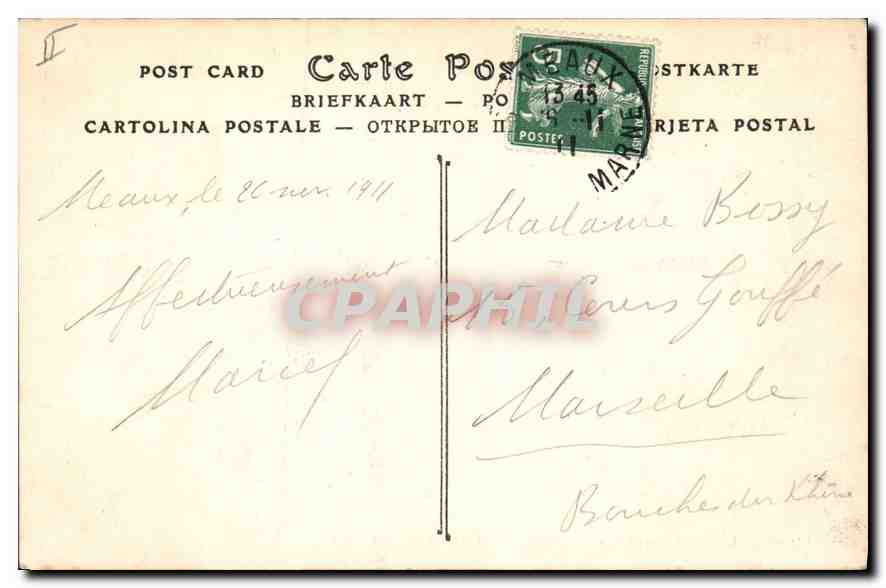 II
POST CARD Carte Pos OSTKARTE
BRIEFKAART — PO
CARTOLINA POSTALE — ОТКРЫТОЕ П RJETA POSTAL
REPUBLIQUE
POSTES
MEAUX
13 45
11
11
MARNE
Meaux, le 20 nov. 1911
Affectueusement
Marcel
Madame Bossy
15, Cours Gouffé
Marseille
Bouches du Rhône
CPAPHIL